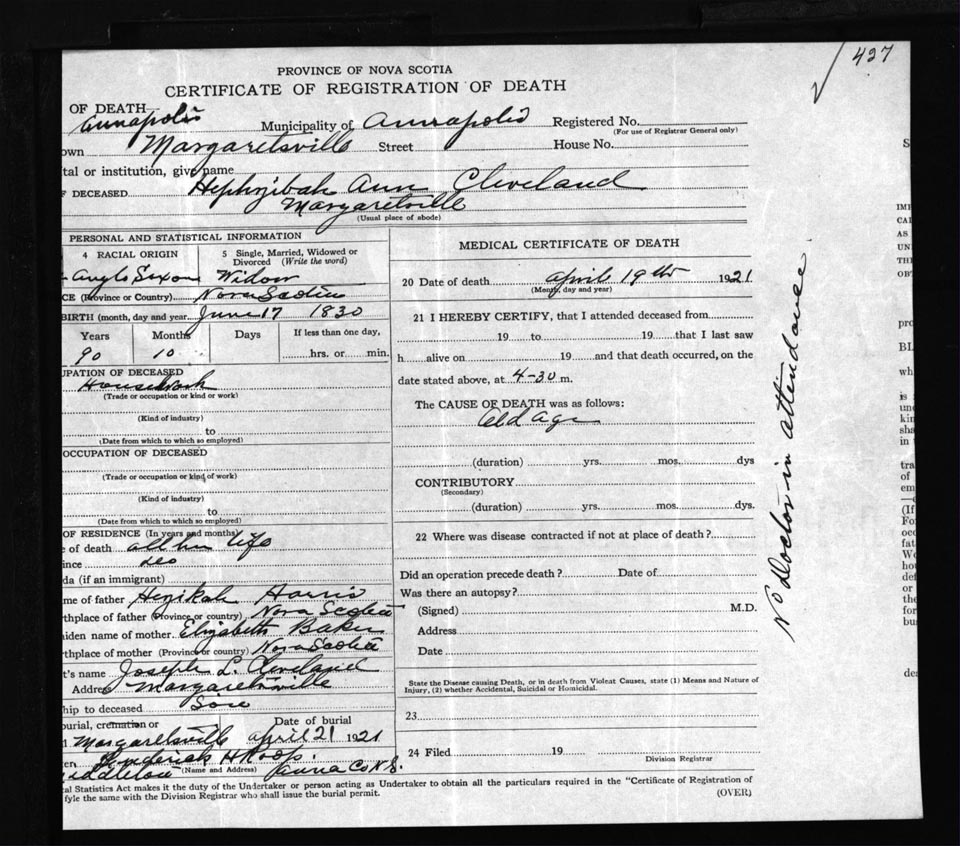 427
PROVINCE OF NOVA SCOTIA
CERTIFICATE OF REGISTRATION OF DEATH
OF DEATH Annapolis Municipality of Annapolis Registered No.
(For use of Registrar General only)
own Margaretsville Street House No.
tal or institution, give name
F DECEASED Hephzibah Ann Cleveland
Margaretville
(Usual place of abode)
PERSONAL AND STATISTICAL INFORMATION
4 RACIAL ORIGIN 5 Single, Married, Widowed or Divorced (Write the word)
Anglo Saxon Widow
CE (Province or Country) Nova Scotia
BIRTH (month, day and year June 17 1830
Years Months Days If less than one day,
90 10 hrs. or min.
UPATION OF DECEASED
Housework
(Trade or occupation or kind or work)
(Kind of industry)
to
(Date from which to which so employed)
OCCUPATION OF DECEASED
(Trade or occupation or kind of work)
(Kind of industry)
to
(Date from which to which so employed)
OF RESIDENCE (In years and months)
e of death all her life
ince do
da (if an immigrant)
me of father Hezikah Harris
rthplace of father (Province or country) Nova Scotia
iden name of mother Elizabeth Baker
rthplace of mother (Province or country) Nova Scotia
t's name Joseph L. Cleveland
Address Margaretsville
hip to deceased Son
burial, cremation or Date of burial
Margaretsville April 21 1921
en Frederick H Roop
iddleton (Name and Address) Anna Co N.S.
MEDICAL CERTIFICATE OF DEATH
20 Date of death April 19th 1921
(Month, day and year)
21 I HEREBY CERTIFY, that I attended deceased from
19 to 19 that I last saw
h alive on 19 and that death occurred, on the
date stated above, at 4-30 m.
The CAUSE OF DEATH was as follows:
Old Age
(duration) yrs. mos. dys
CONTRIBUTORY
(Secondary)
(duration) yrs. mos. dys.
22 Where was disease contracted if not at place of death?
Did an operation precede death? Date of
Was there an autopsy?
(Signed) M.D.
Address
Date
State the Disease causing Death, or in death from Violeat Causes, state (1) Means and Nature of
Injury, (2) whether Accidental, Suicidal or Homicidal.
23
24 Filed 19
Division Registrar
No Doctor in attendance
al Statistics Act makes it the duty of the Undertaker or person acting as Undertaker to obtain all the particulars required in the "Certificate of Registration of
fyle the same with the Division Registrar who shall issue the burial permit. (OVER)